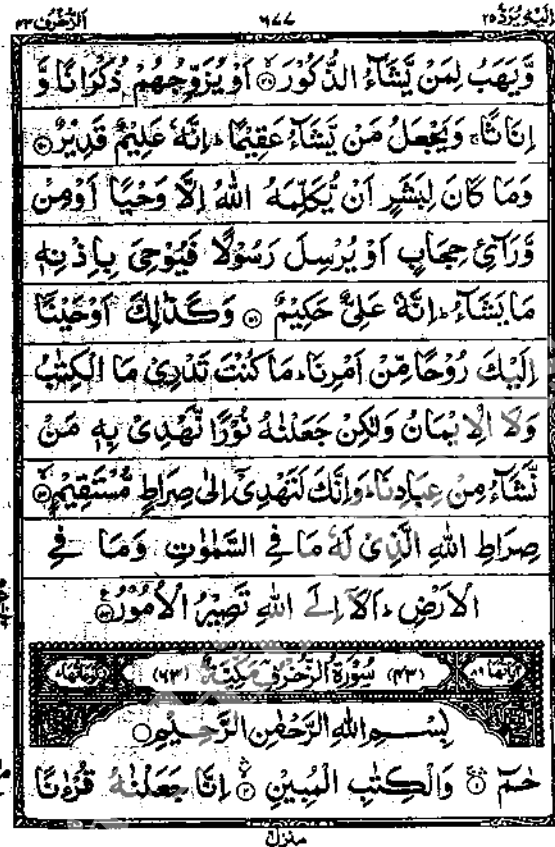 اِلَیْہِ یُرَدُّ ۲۵ ۶۷۷ اَلزُّخْرُف ۴۳
وَّیَهَبُ لِمَنْ یَّشَآءُ الذُّكُوْرَ ۙ﴿۴۹﴾ اَوْ یُزَوِّجُهُمْ ذُكْرَانًا وَّ
اِنَاثًا ۚ وَیَجْعَلُ مَنْ یَّشَآءُ عَقِیْمًا ؕ اِنَّهٗ عَلِیْمٌ قَدِیْرٌ ﴿۵۰﴾
وَمَا كَانَ لِبَشَرٍ اَنْ یُّكَلِّمَهُ اللّٰهُ اِلَّا وَحْیًا اَوْ مِنْ
وَّرَآئِ حِجَابٍ اَوْ یُرْسِلَ رَسُوْلًا فَیُوْحِیَ بِاِذْنِهٖ
مَا یَشَآءُ ؕ اِنَّهٗ عَلِیٌّ حَكِیْمٌ ﴿۵۱﴾ وَكَذٰلِكَ اَوْحَیْنَاۤ
اِلَیْكَ رُوْحًا مِّنْ اَمْرِنَا ؕ مَا كُنْتَ تَدْرِیْ مَا الْكِتٰبُ
وَلَا الْاِیْمَانُ وَلٰكِنْ جَعَلْنٰهُ نُوْرًا نَّهْدِیْ بِهٖ مَنْ
نَّشَآءُ مِنْ عِبَادِنَا ؕ وَاِنَّكَ لَتَهْدِیْۤ اِلٰی صِرَاطٍ مُّسْتَقِیْمٍ ﴿۵۲﴾
صِرَاطِ اللّٰهِ الَّذِیْ لَهٗ مَا فِی السَّمٰوٰتِ وَمَا فِی
الْاَرْضِ ؕ اَلَاۤ اِلَی اللّٰهِ تَصِیْرُ الْاُمُوْرُ ﴿۵۳﴾
اٰیاتها ۸۹ (۴۳) سُوْرَةُ الزُّخْرُفِ مَكِّیَّةٌ (۶۳)
بِسْمِ اللّٰهِ الرَّحْمٰنِ الرَّحِیْمِ
حٰمٓ ﴿۱﴾ وَالْكِتٰبِ الْمُبِیْنِ ﴿۲﴾ اِنَّا جَعَلْنٰهُ قُرْءٰنًا
منزل